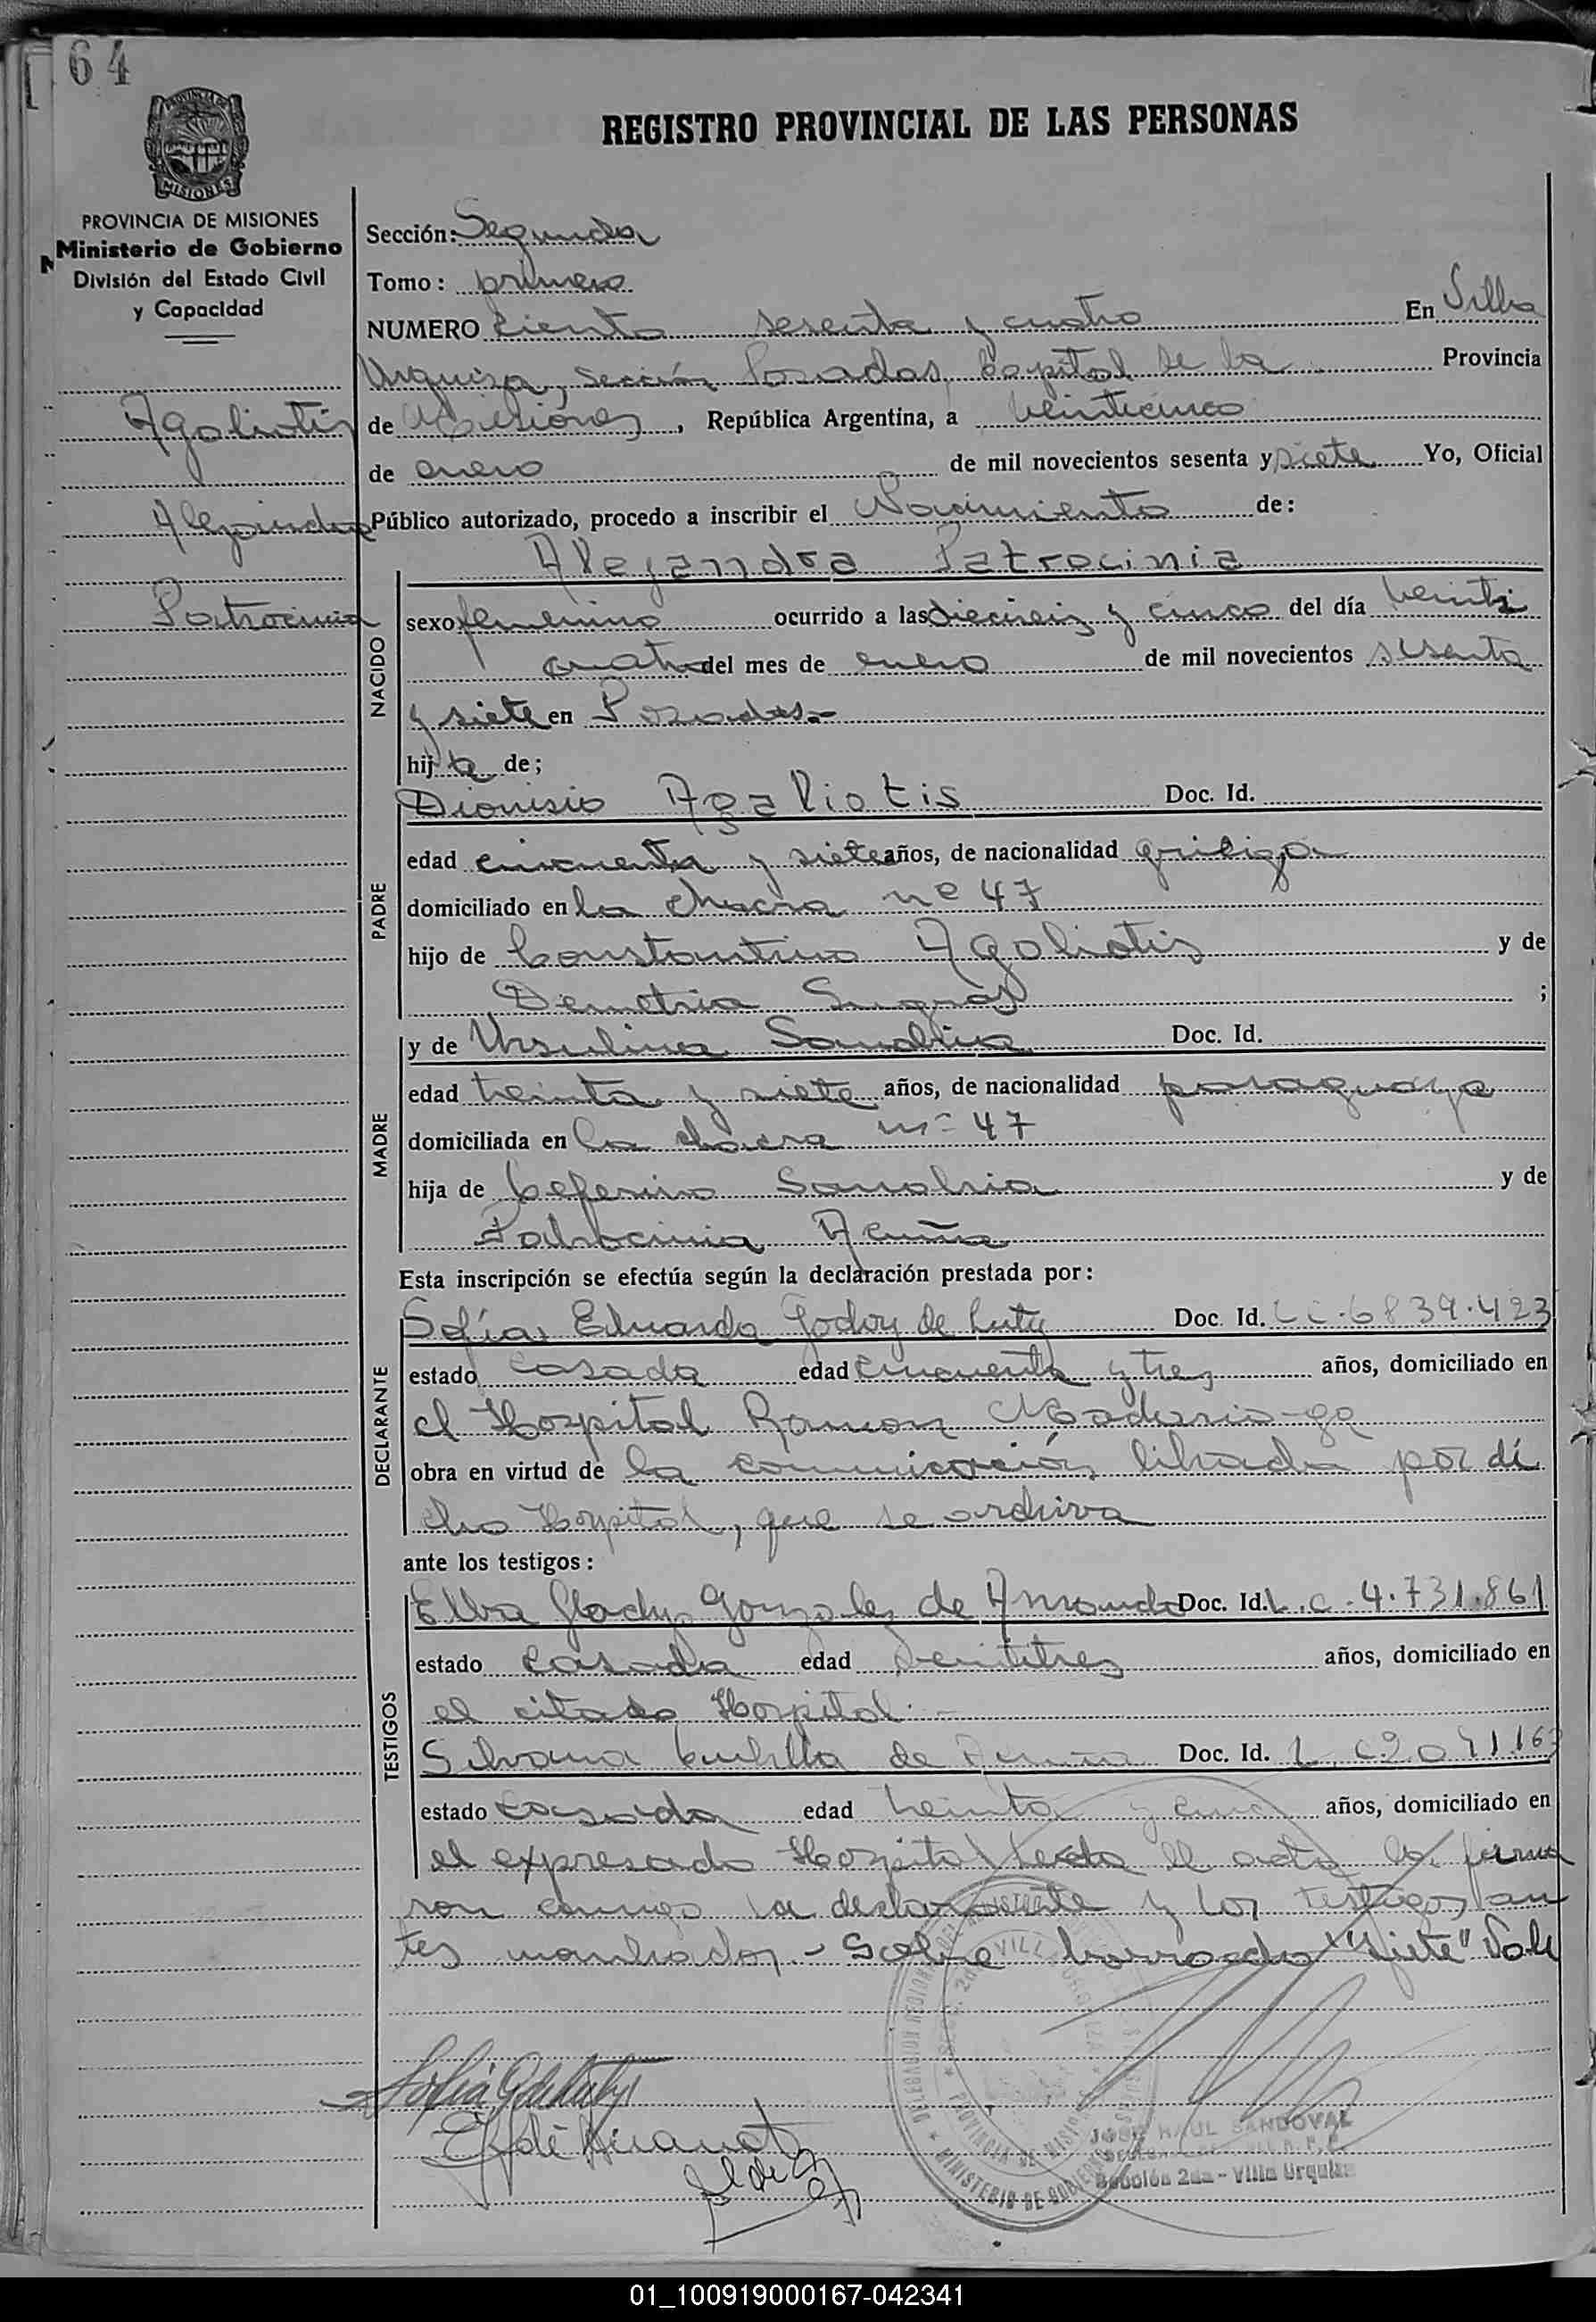 64
REGISTRO PROVINCIAL DE LAS PERSONAS
PROVINCIA DE MISIONES
Ministerio de Gobierno
División del Estado Civil
y Capacidad
Agaliotis
Alejandra
Patrocinia
Sección: Segunda
Tomo: primero
NUMERO Ciento sesenta y cuatro En Villa
Urquiza, sección Posadas, Capital de la Provincia
de Misiones, República Argentina, a veinticinco
de enero de mil novecientos sesenta y siete Yo, Oficial
Público autorizado, procedo a inscribir el Nacimiento de:
NACIDO
Alejandra Patrocinia
sexo femenino ocurrido a las dieciseis y cinco del día veinti
cuatro del mes de enero de mil novecientos sesenta
y siete en Posadas.-
hija de;
PADRE
Dionisio Agaliotis Doc. Id.
edad cincuenta y siete años, de nacionalidad griega
domiciliado en la chacra nº 47
hijo de Constantino Agaliotis y de
Demetria ;
MADRE
y de Ursulina Sanabria Doc. Id.
edad treinta y siete años, de nacionalidad paraguaya
domiciliada en la chacra nº 47
hija de Ceferino Sanabria y de
Patrocinia Acuña
Esta inscripción se efectúa según la declaración prestada por:
DECLARANTE
Sofía Eduarda Godoy de Doc. Id. L C. 6839.423
estado casada edad cincuenta y tres años, domiciliado en
el Hospital Ramon Madariaga
obra en virtud de la comunicación librada por di
cho Hospital, que se archiva
ante los testigos:
TESTIGOS
Elba Gladys Gonzalez de Doc. Id. L.C. 4.731.861
estado casada edad veintitres años, domiciliado en
el citado Hospital.-
Silvana de Doc. Id. L C
estado casada edad treinta y años, domiciliado en
el expresado Hospital leida el acta la firma
ron conmigo la declarante y los testigos an
tes nombrados.- Sobre borrado "siete" Vale
DELEGACION
MINISTERIO DE GOBIERNO
PROVINCIA DE MISIONES
JOSE RAUL SANDOVAL
Sección 2da - Villa Urquiza
01_100919000167-042341